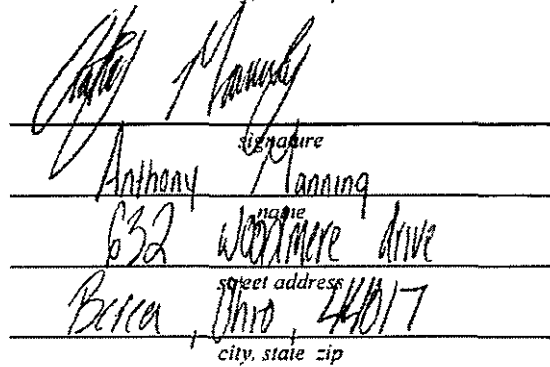 signature
Anthony Manning
name
632 Woodmere drive
street address
Berea, Ohio, 44017
city, state zip